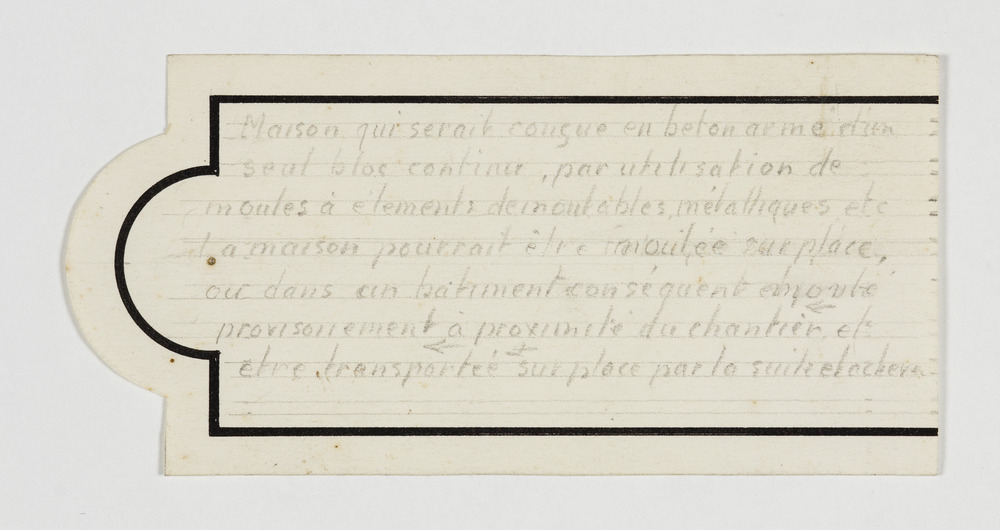 Maison qui serait conçue en beton armé d'un
seul bloc continu, par utilisation de
moules à élements demoutables, métalliques etc
La maison pourrait être moulée sur place,
ou dans un bâtiment conséquent
provisoriement à proximité du chantier, et
etre transportée sur place par la suite et